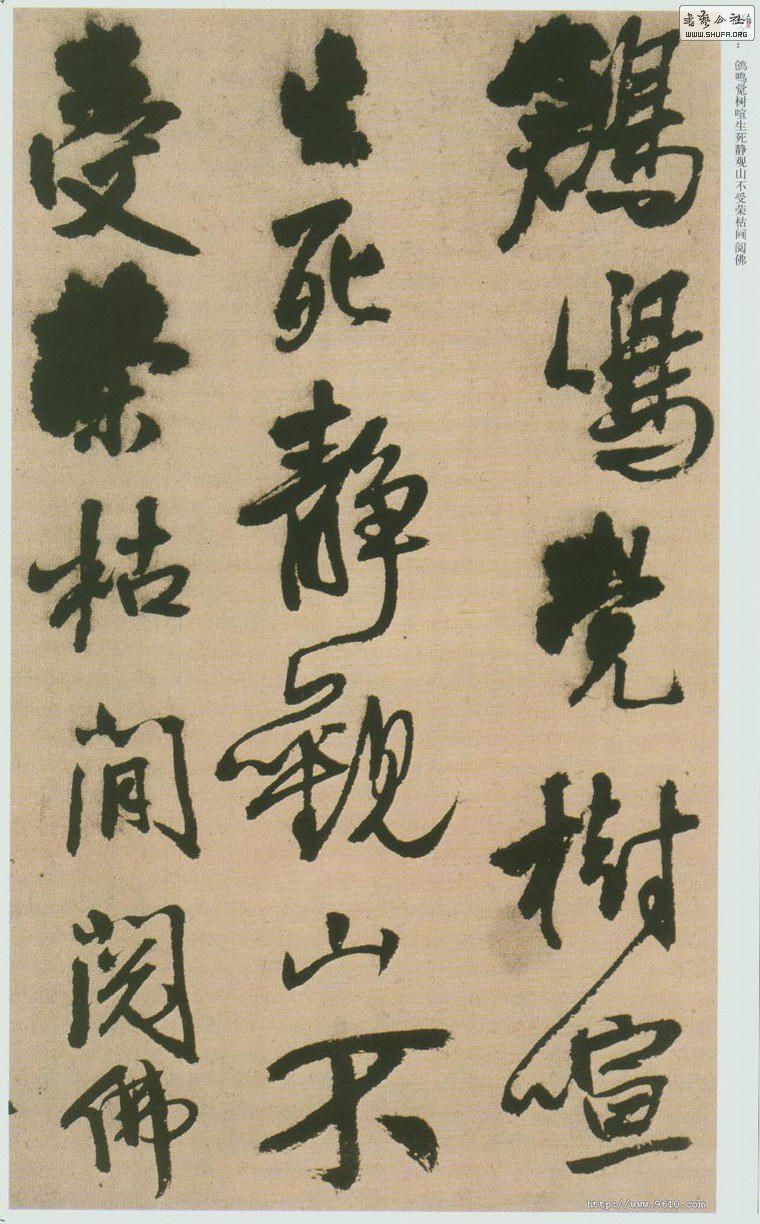 书艺公社
WWW.SHUFA.ORG
鸽鸣觉树喧生死静观山不受荣枯间阅佛
鴿鳴覺樹喧
生死靜觀山不
受榮枯閒閱佛
http://www.9610.com